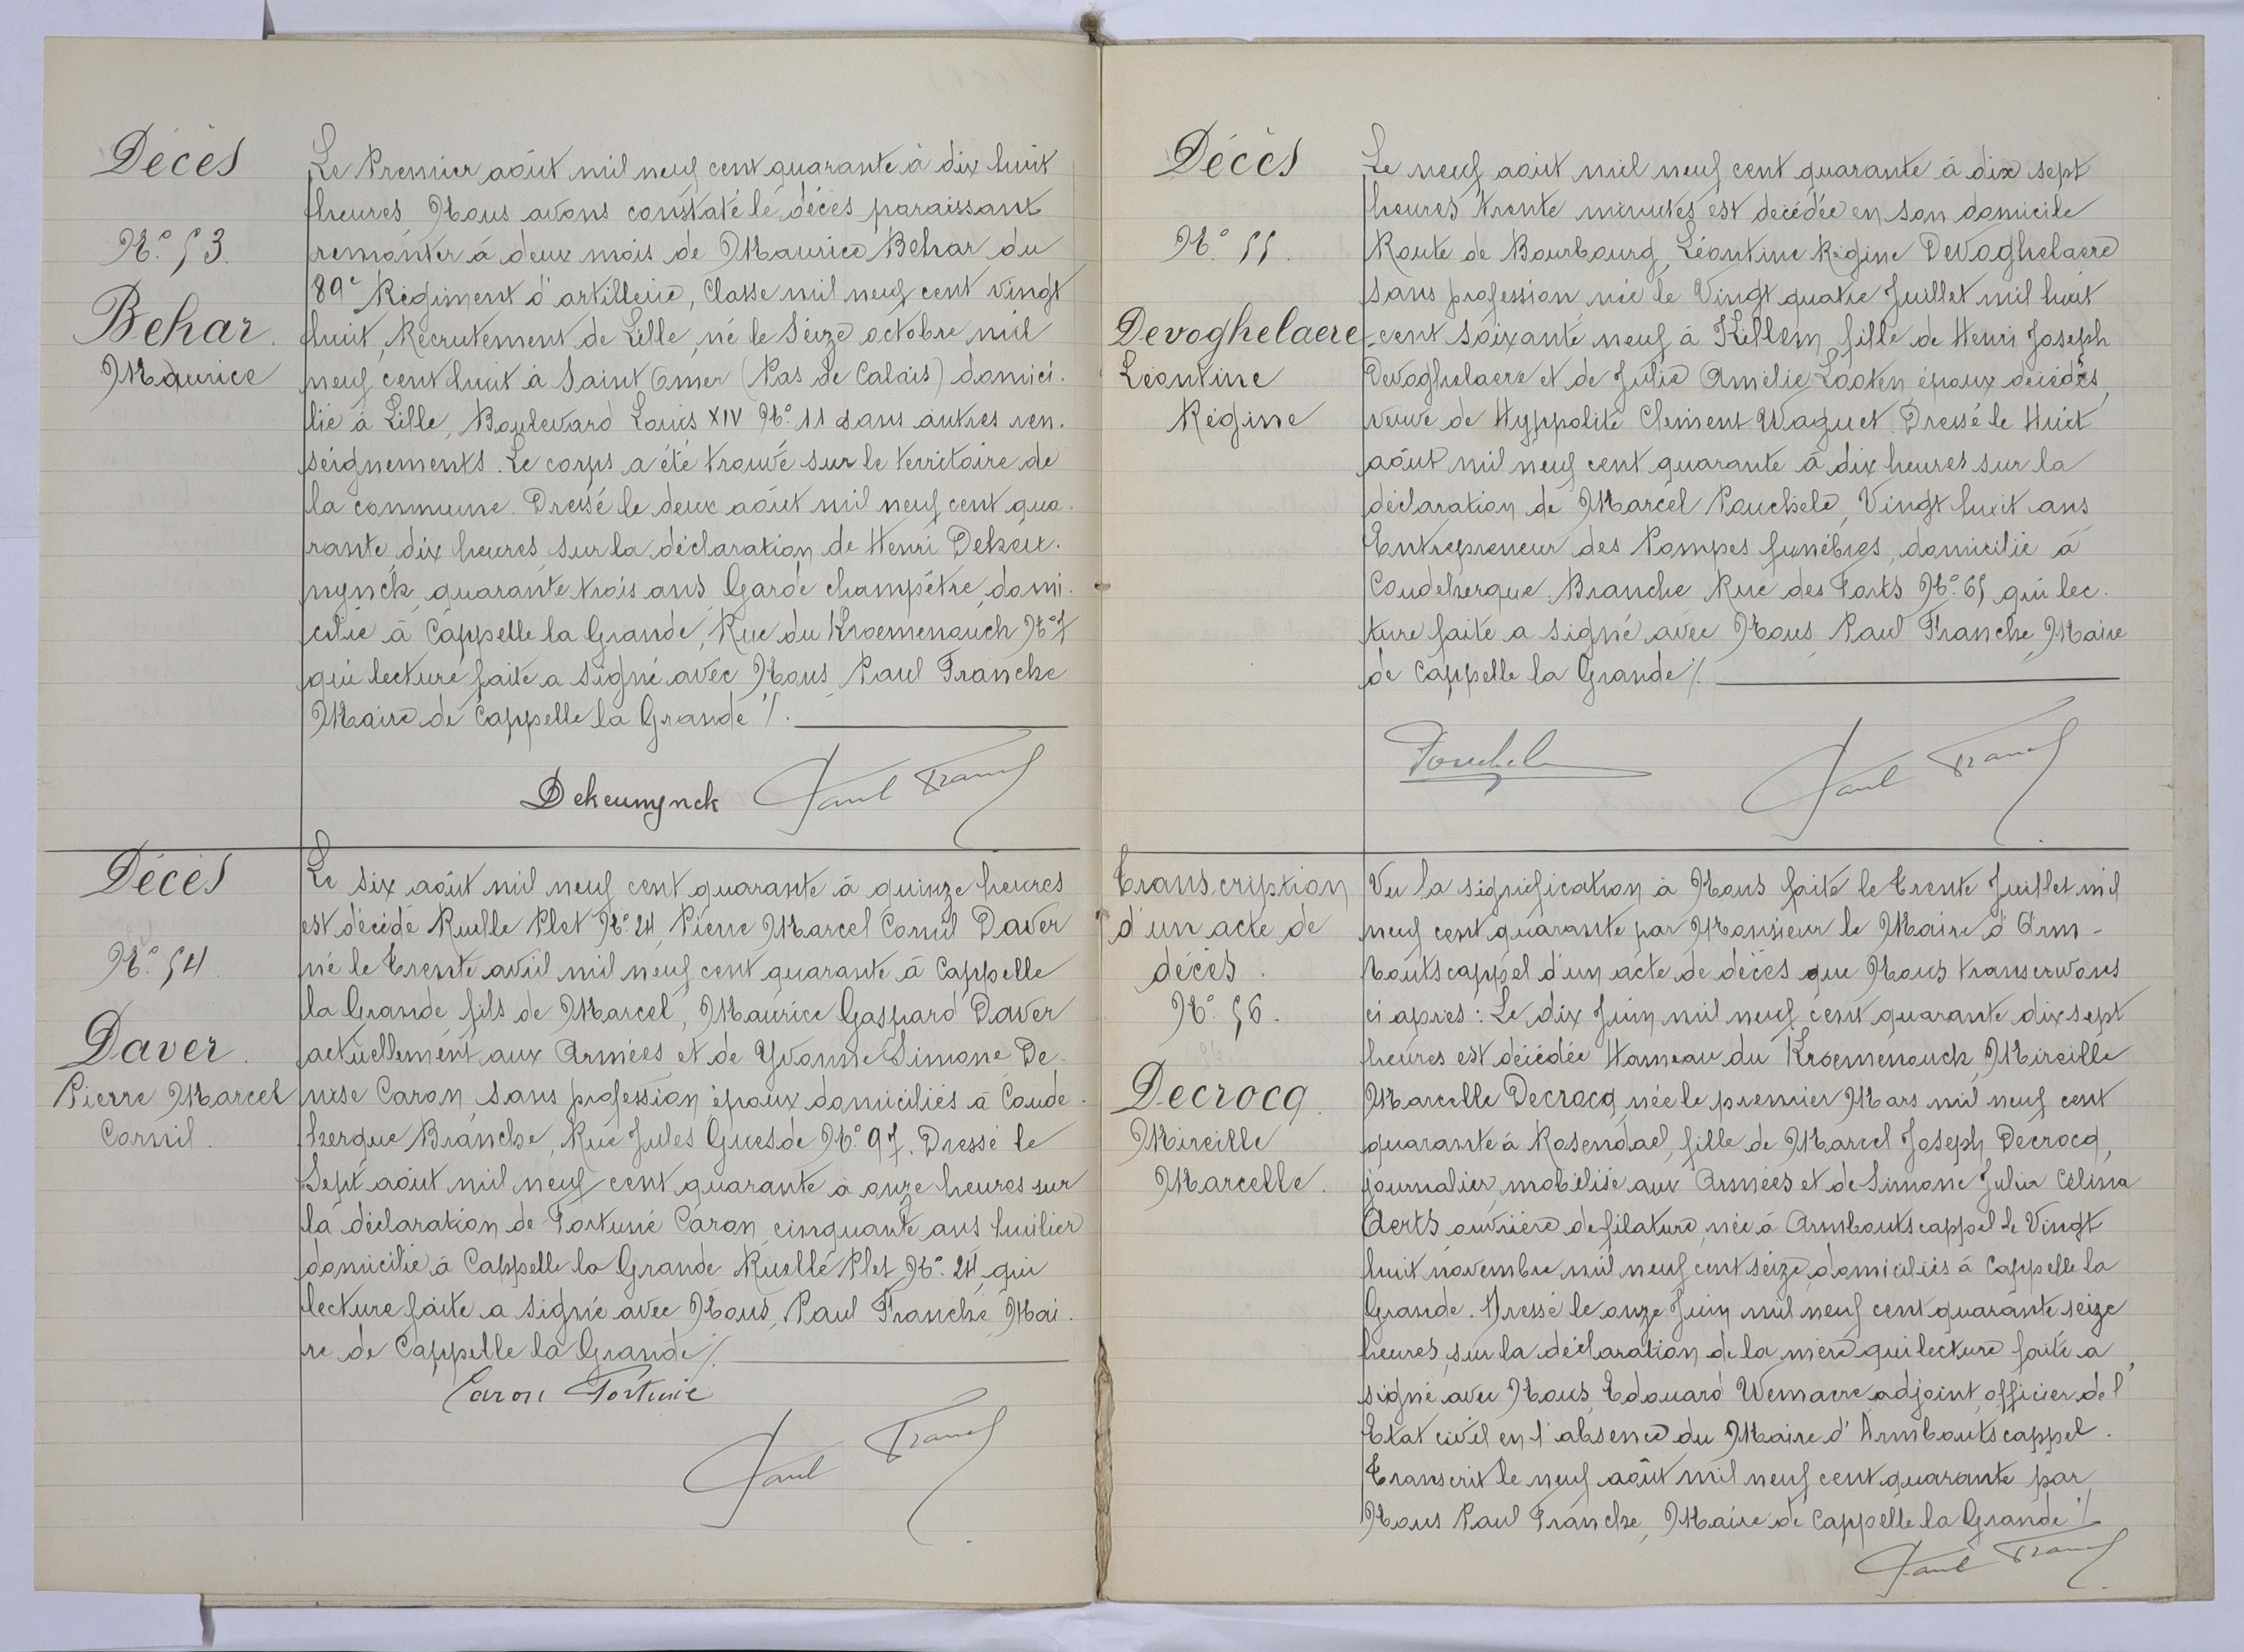 Décès
N° 53.
Behar.
Maurice
Le Premier août mil neuf cent quarante à dix huit
heures, Nous avons constaté le décès paraissant
remonter à deux mois de Maurice Behar du
89e Régiment d'artillerie, Classe mil neuf cent vingt
huit, Recrutement de Lille, né le Seize octobre mil
neuf cent huit à Saint Omer (Pas de Calais) domici-
lié à Lille, Boulevard Louis XIV N° 11 sans autres ren-
seignements. Le corps a été trouvé sur le territoire de
la commune. Dressé le deux août mil neuf cent qua-
rante, dix heures, sur la déclaration de Henri Dekeu-
nynck, quarante trois ans, Garde champêtre, domi-
cilié à Cappelle la Grande, Rue du Kroemenouch N° 7
qui lecture faite a signé avec Nous, Paul Franche
Maire de Cappelle la Grande ./.
Dekeunynck Paul Franch
Décès
N° 54
Daver.
Pierre Marcel
Cornil.
Le six août mil neuf cent quarante à quinze heures
est décédé Ruelle Plet N° 24, Pierre Marcel Cornil Daver
né le trente avril mil neuf cent quarante à Cappelle
la Grande fils de Marcel, Maurice Gaspard Daver
actuellement aux Armées et de Yvonne Simone De-
nise Caron, sans profession époux domiciliés à Coude-
kerque Branche, Rue Jules Guesde N° 97. Dressé le
Sept août mil neuf cent quarante à onze heures sur
la déclaration de Fortuné Caron, cinquante ans huilier
domicilié à Cappelle la Grande Ruelle Plet N° 24 qui
lecture faite a signé avec Nous, Paul Franche, Mai-
re de Cappelle la Grande ./.
Caron Fortuné
Paul Franch
Décès
N° 55.
Devoghelaere
Léontine
Régine
Le neuf août mil neuf cent quarante à dix sept
heures trente minutes est décédée en son domicile
Route de Bourbourg, Léontine Régine Devoghelaere
sans profession, née le Vingt quatre Juillet mil huit
cent soixante neuf à Killem, fille de Henri Joseph
Devoghelaere et de Julie Amélie Looten, époux décédés,
veuve de Hyppolite Clément Waguet. Dressé le Huit
août mil neuf cent quarante à dix heures sur la
déclaration de Marcel Pouchele, Vingt huit ans
Entrepreneur des Pompes funèbres, domicilié à
Coudekerque. Branche Rue des Forts N° 65 qui lec-
ture faite a signé avec Nous, Paul Franche, Maire
de Cappelle la Grande ./.
Pouchele Paul Franch
Transcription
d'un acte de
décès.
N° 56.
Decrocq.
Mireille
Marcelle.
Vu la signification à Nous faite le trente Juillet mil
neuf cent quarante par Monsieur le Maire d'Arm-
boutscappel d'un acte de décès que Nous transcrivons
ci après : Le dix Juin mil neuf cent quarante dix sept
heures est décédée Hameau du Kroemenouck, Mireille
Marcelle Decrocq, née le premier Mars mil neuf cent
quarante à Rosendael, fille de Marcel Joseph Decrocq,
journalier, mobilisé aux Armées et de Simone Julia Célina
Aerts, ouvrière de filature, née à Armboutscappel le Vingt
huit novembre mil neuf cent seize, domiciliés à Cappelle la
Grande. Dressé le onze Juin mil neuf cent quarante seize
heures, sur la déclaration de la mère qui lecture faite a
signé avec Nous, Edouard Wemaere adjoint, officier de l'
Etat civil en l'absence du Maire d'Armboutscappel.
Transcrit le neuf août mil neuf cent quarante par
Nous Paul Franche, Maire de Cappelle la Grande ./.
Paul Franch